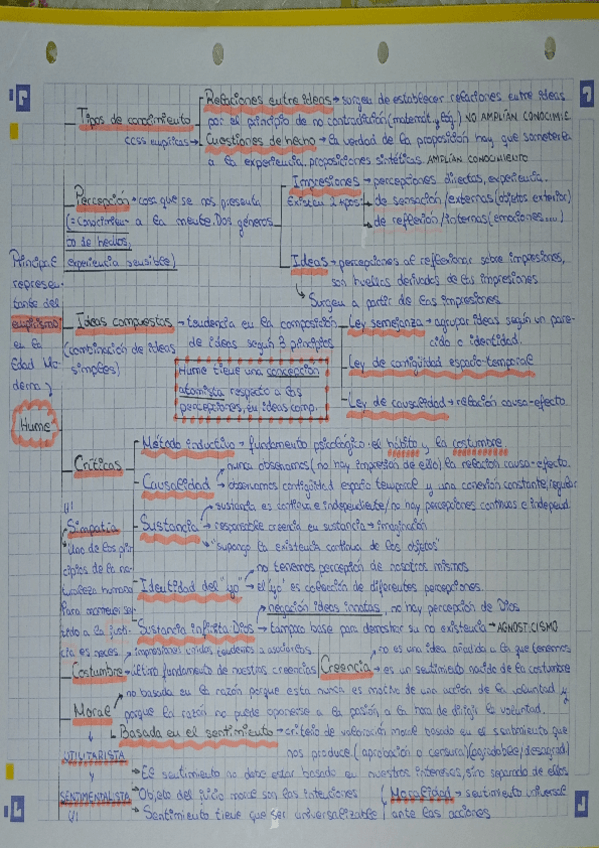 Relaciones entre ideas → surgen de establecer relaciones entre ideas
Tipos de conocimiento
por el principio de no contradicción (matemát. y lóg.) NO AMPLÍAN CONOCIMIE.
ccss empíricas → Cuestiones de hecho → la verdad de la proposición hay que someterla
a la experiencia, proposiciones sintéticas. AMPLÍAN CONOCIMIENTO
Impresiones → percepciones directas, experiencia.
Percepción → cosa que se nos presenta
Existen 2 tipos:
de sensación/externas (objetos exterior)
(= conocimien- a la mente. Dos géneros
de reflexión/internas (emociones....)
to de hechos,
experiencia sensible)
Ideas → percepciones al reflexionar sobre impresiones,
son huellas derivadas de las impresiones
↳ Surgen a partir de las impresiones
Principal
represen-
tante del
empirismo
en la
Edad Mo-
derna
Hume
Ideas compuestas → tendencia en la composición
de ideas según 3 principios
(combinación de ideas
simples)
Ley semejanza → agrupar ideas según un pare-
cido o identidad.
Ley de contigüidad espacio-temporal
Ley de causalidad → relación causa-efecto.
Hume tiene una concepción
atomista respecto a las
percepciones, en ideas comp.
Críticas
Método inductivo → fundamento psicológico: el hábito y la costumbre
nunca observamos (no hay impresión de ello) la relación causa-efecto.
Causalidad → observamos contigüidad espacio temporal y una conexión constante, regular
sustancia es continua e independiente/no hay percepciones continuas e independ.
Sustancia → responsable creencia en sustancia → imaginación
"supongo la existencia continua de los objetos"
no tenemos percepción de nosotros mismos
Identidad del "yo" → el 'yo' es colección de diferentes percepciones.
negación ideas innatas, no hay percepción de Dios
Sustancia infinita Dios → tampoco base para demostrar su no existencia → AGNOSTICISMO
Simpatía
Uno de los prin-
cipios de la na-
turaleza humana
Para mantener ser
a la justi-
cia es neces.
impresiones unidas tendemos a asociarlas
Costumbre → último fundamento de nuestras creencias
Creencia
no es una idea añadida a la que tenemos
→ es un sentimiento nacido de la costumbre
Moral
no basada en la razón porque esta nunca es motivo de una acción de la voluntad y
porque la razón no puede oponerse a la pasión a la hora de dirigir la voluntad.
↳ Basada en el sentimiento → criterio de valoración moral basado en el sentimiento que
nos produce (aprobación o censura) (agradable/desagrad)
UTILITARISTA
y
SENTIMENTALISTA
→ El sentimiento no debe estar basado en nuestros intereses, sino separado de ellos
→ Objeto del juicio moral son las intenciones
Moralidad → sentimiento universal
→ Sentimiento tiene que ser universalizable
ante las acciones